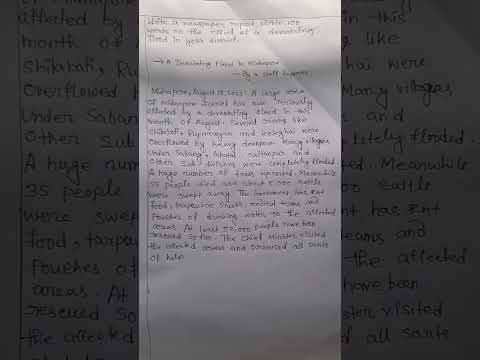 Write a newspaper report within 100
words on the effect of a devastating
flood in your district.
→ A Devastating Flood in Midnapore
- By a Staff Reporter
Midnapore, August 18, : A large area
of Midnapore District has been seriously
affected by a devastating flood in this
month of August. Several rivers like
Shilabati, Rupnarayan and Keleghai were
overflowed by heavy downpour. Many villages
under Sabang, Ghatal and
other Sub-divisions were completely flooded.
A huge number of trees uprooted. Meanwhile
35 people died and about 5,000 cattle
were swept away. The Government has sent
food, tarpauline sheets, medical teams and
Pouches of drinking water to the affected
areas. At least 50,000 people have been
rescued so far. The Chief Minister visited
the affected areas and promised all sorts
of help.